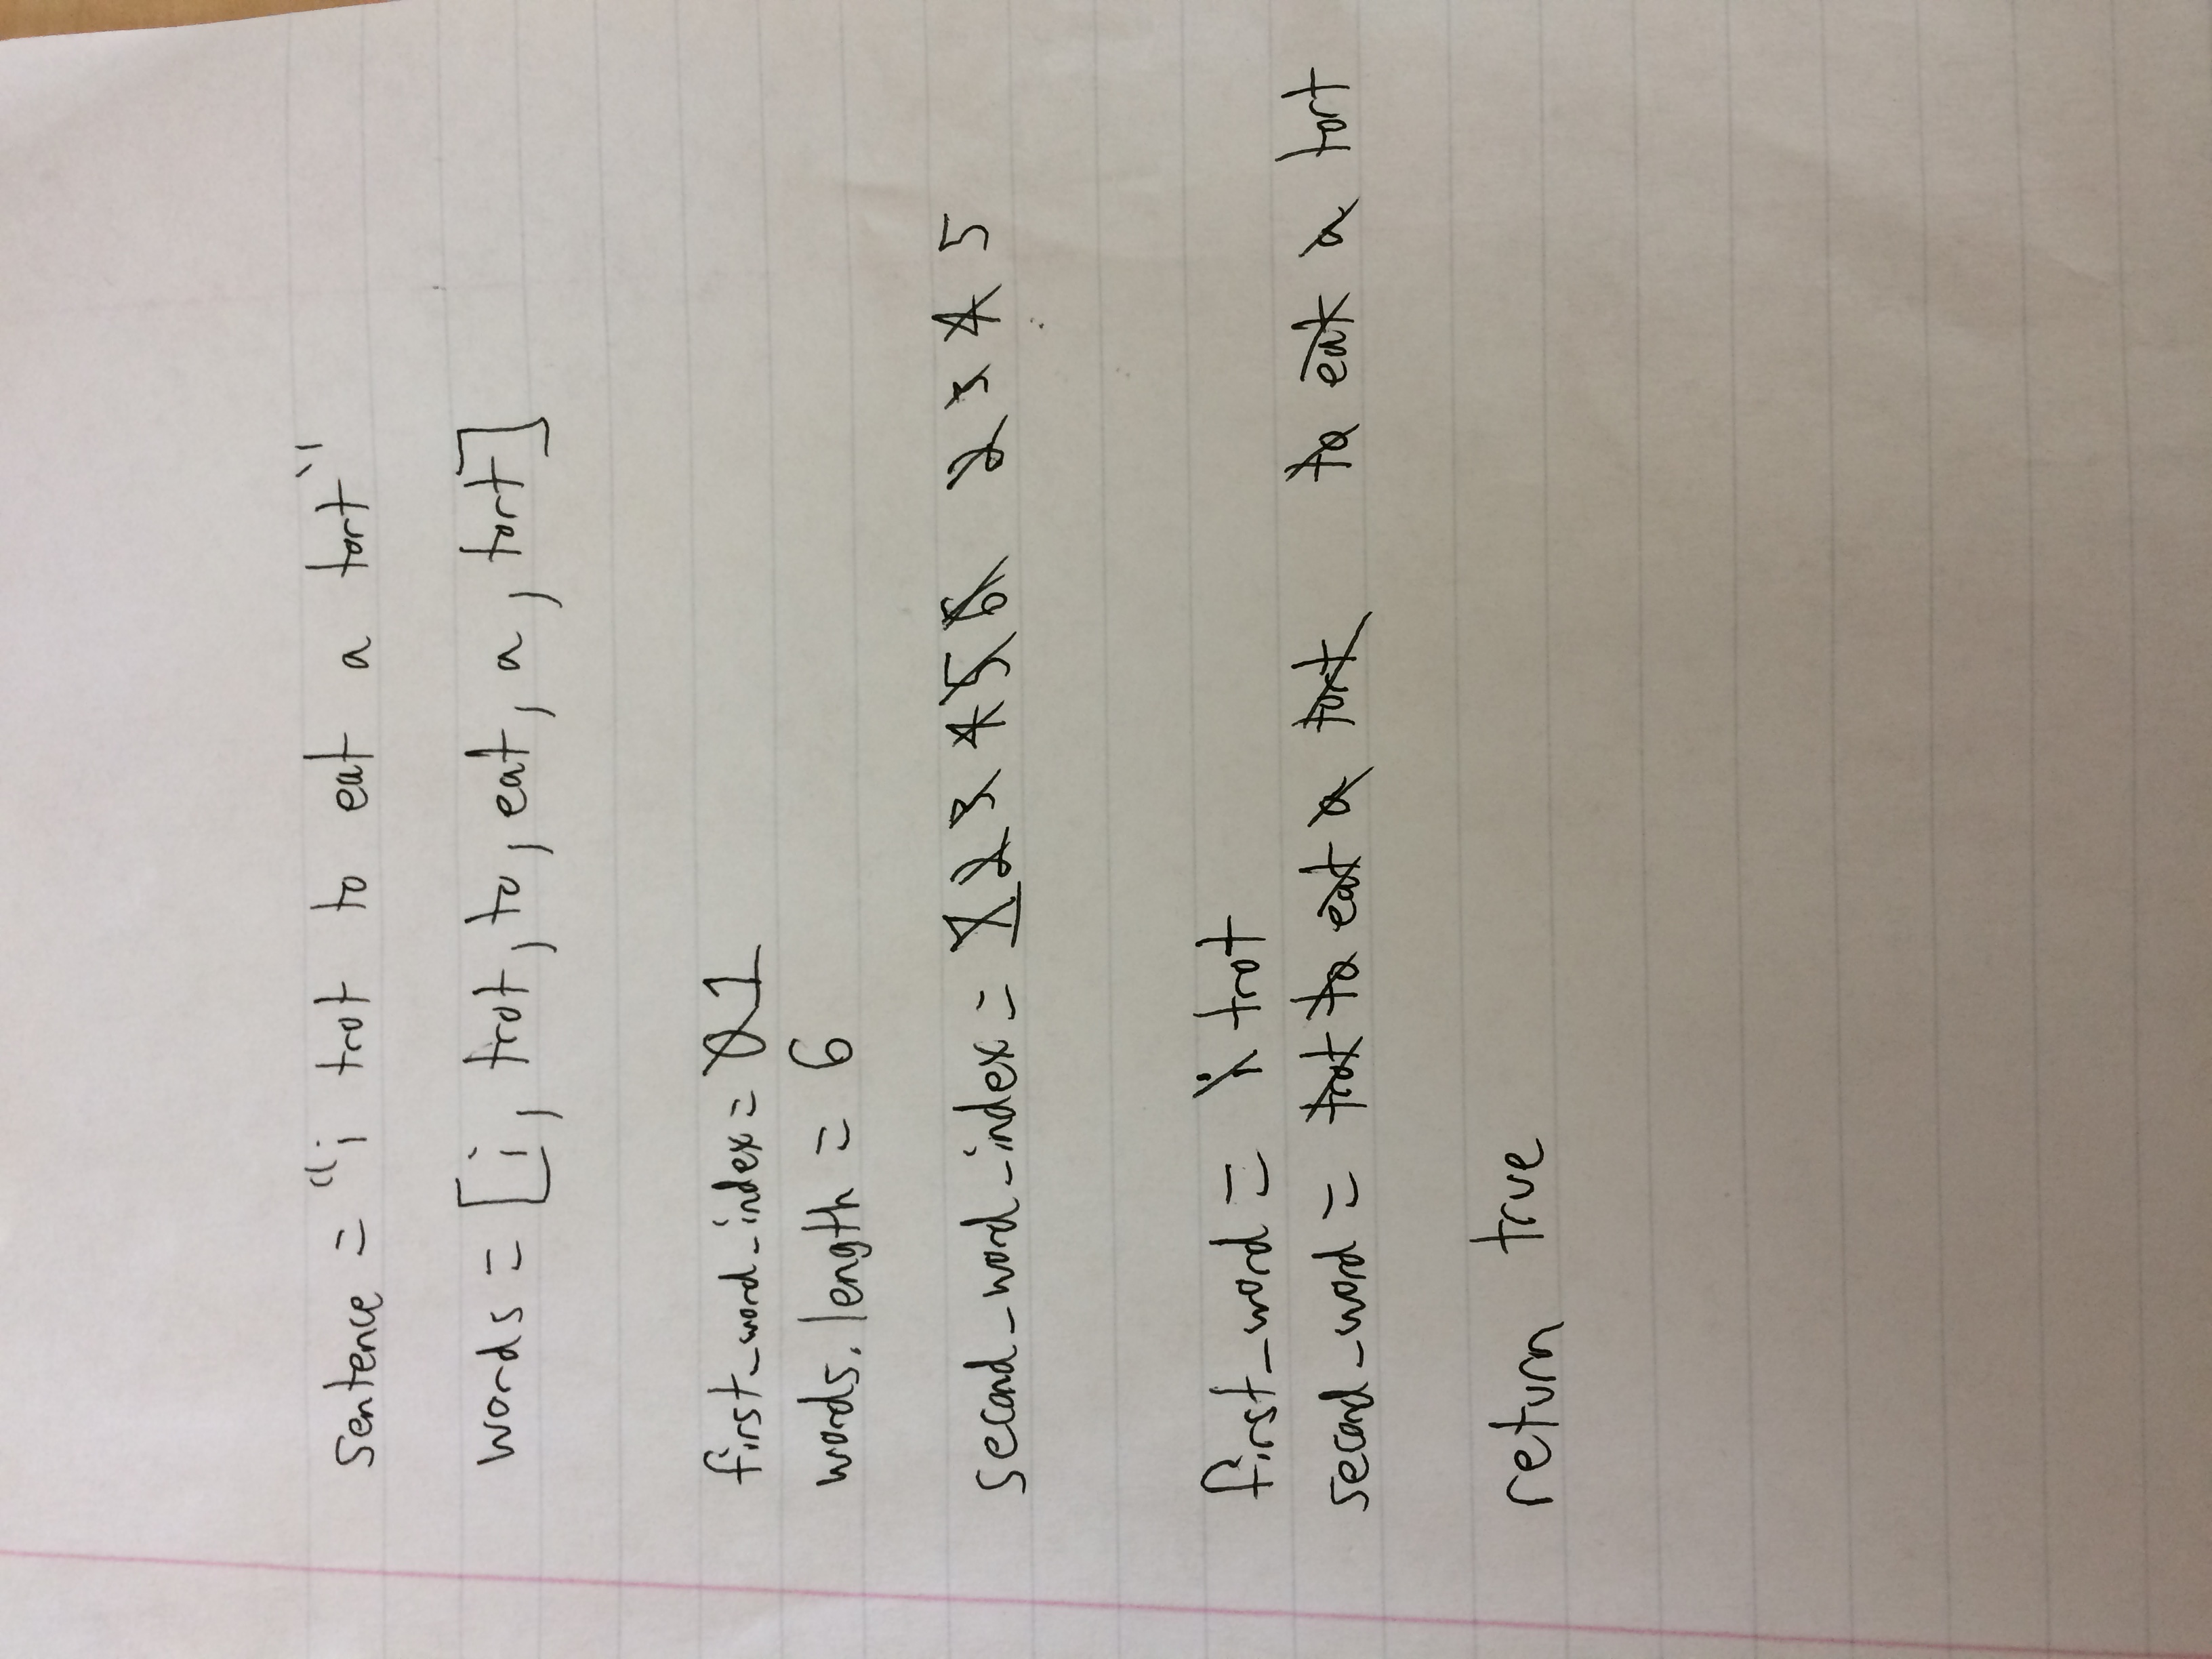 sentence = "i trot to eat a tort"
words = [i, trot, to, eat, a, tort]
first_word_index = 0 1
words.length = 6
second_word_index = 1 2 3 4 5 6 2 3 4 5
first_word = i trot
second_word = trot to eat a tort to eat a tort
return true